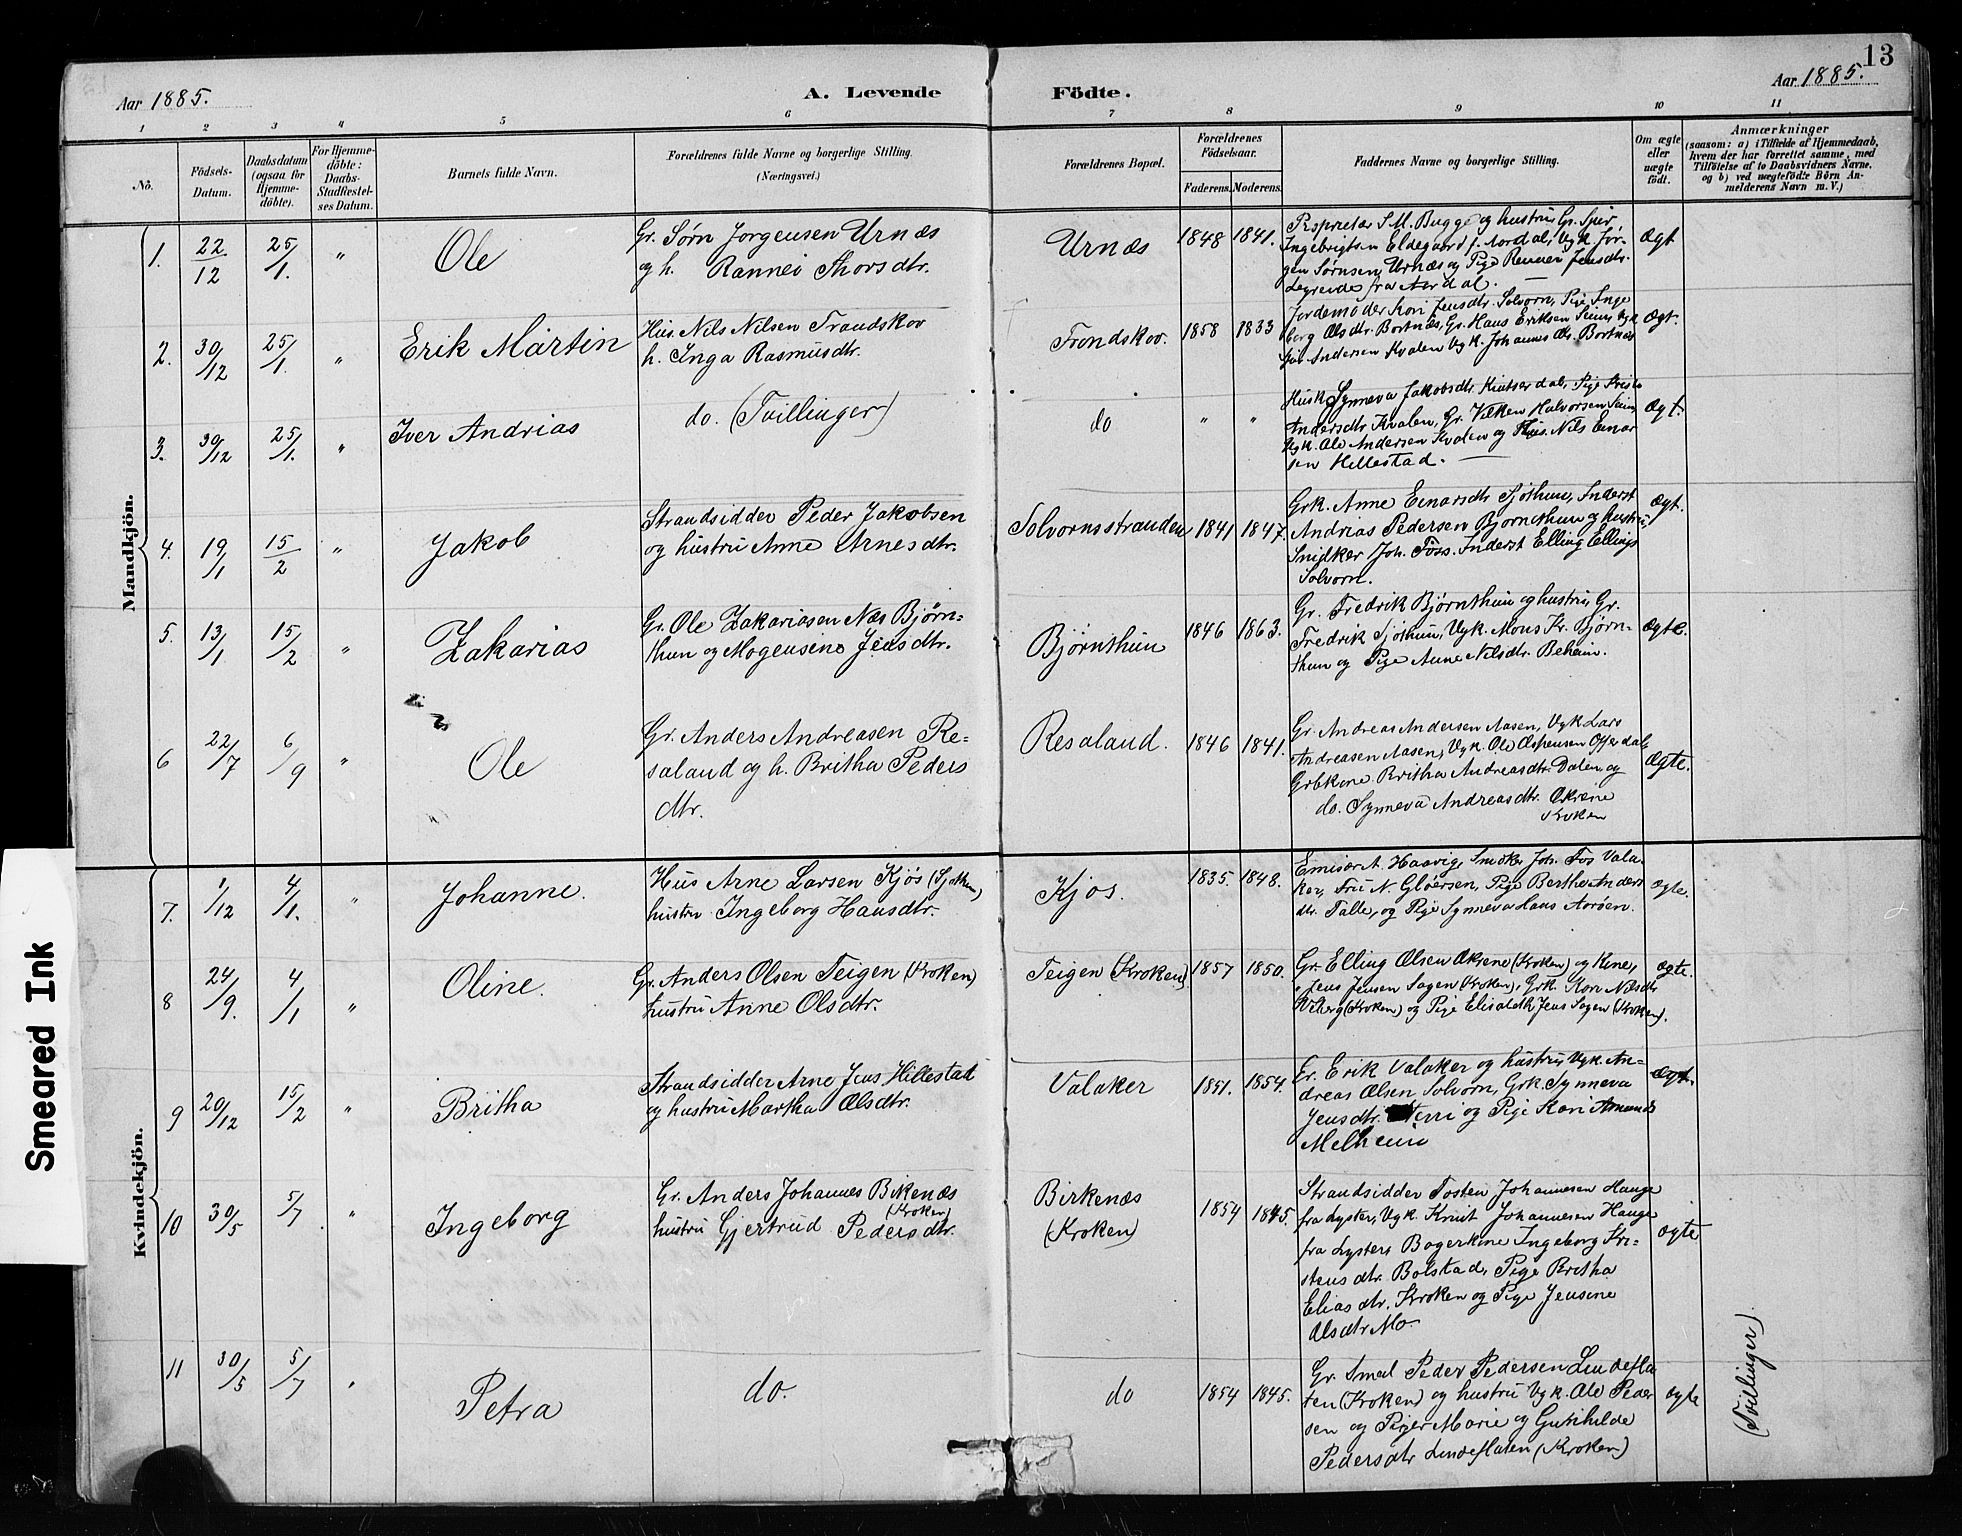 13
Aar 1885.
A. Levende
Födte.
Aar 1885.
1 2 3 4 5 6 7 8 9 10 11
No.
Födsels-
Datum.
Daabsdatum
(ogsaa for
Hjemme-
döbte).
For Hjemme-
döbte:
Daabs-
Stadfæstel-
ses Datum.
Barnets fulde Navn.
Forældrenes fulde Navne og borgerlige Stilling.
(Næringsvei.)
Forældrenes Bopæl.
Forældrenes
Födselsaar.
Faderens.
Moderens.
Faddernes Navne og borgerlige Stilling.
Om ægte
eller
uægte
födt.
Anmærkninger
(saasom: a) i Tilfælde af Hjemmedaab,
hvem der har forrettet samme, med
Tilföielse af to Daabsvidners Navne.
og b) ved uægtefödte Börn An-
melderens Navn m. V.)
Mandkjön.
1. 22/12 25/1. " Ole
Gr. Sørn Jorgensen Urnæs
og h. Rannei Thorsdtr.
Urnæs 1848 1841.
Proprietær S M. Bugge og hustru, Gr. Sjur
Ingebrigtsen Eldegaard f. Aardal, Ugk. Jør-
gen Sørnsen, Urnæs og Pige Jensdtr.
fra Aardal.
Ægt
2. 30/12 25/1. " Erik Martin
Hus. Nils Nilsen Trandskov
h. Inga Rasmusdtr.
Trondskov. 1858 1833
Jordemoder Kari Jensdtr. Solvorn, Pige Inge
borg Olsdtr. Bortnæs, Gr. Hans Eriksen
Andersen Kvalen Ugk. Johannes Ols. Bortnæs
Ægt.
3. 30/12 25/1. " Iver Andrias
do. (Tvillinger)
do " "
Husk Synneva Jakobsdtr. Kinserdal, Pige
Andersdtr. Kvalen, Gr. Halvorsen
Ugk. Ole Andersen Kvalen og Hus. Nils Einar
sen Hillestad.
Ægt.
4. 19/1 15/2 " Jakob
Strandsidder Peder Jakobsen
og hustru Anne Arnesdtr.
Solvornsstranden 1841 1847.
Grk. Anne Einarsdtr Sjøthun, Inderst
Andrias Pedersen Bjørnethun og hustru,
Snidker Joh. Foss. Inderst Elling Ellings
Solvorn.
Ægt.
5. 13/1 15/2 " Zakarias
Gr. Ole Zakariasen Næs Bjørn-
thun og Mogensine Jensdtr.
Bjørnthun 1846 1863.
Gr. Fredrik Bjørnthun og hustru, Gr.
Fredrik Sjøthun, Ugk. Mons Kr. Bjørn-
thun og Pige Anne Nilsdtr. Beheim.
Ægte.
6 22/7 6/9 " Ole
Gr. Anders Andreasen Re-
saland og h. Britha Peders
dtr.
Resaland. 1846 1841.
Gr. Andreas Andersen Aasen, Ugk Lars
Andreasen Aasen, Ugk. Ole Aspensen Offerdal,
Grbkone Britha Andreasdtr. Dalen og
do. Synneva Andreasdtr. Økrene
Kroken
Ægte.
Kvindekjön.
7. 1/12 4/1. " Johanne.
Hus Arne Larsen Kjøs (Sjøthun)
hustru Ingeborg Hansdtr.
Kjøs. 1835. 1848.
Emisær A. Haavig, Smdkr. Joh. Fos Vala-
ker, Fru N. Gløersen, Pige Berthe Anders
dtr. Talle, og Pige Synneva Hans Aarøen.
Ægte.
8 24/9. 4/1 " Oline.
Gr. Anders Olsen Teigen (Kroken)
hustru Anne Olsdtr.
Teigen (Kroken) 1857 1850.
Gr. Elling Olsen Økrene (Kroken) og Kone,
Jens Jensen Sagen (Kroken), Grk Kari Nilsdtr
(Kroken) og Pige Elisabeth Jens Sagen (Kroken).
Ægte.
9 20/12 15/2 " Britha
Strandsidder Arne Jens Hillestad
og hustru Martha Olsdtr.
Valaker 1851. 1854.
Gr. Erik Valaker og hustru, Ugk. An-
dreas Olsen Solvorn, Grk. Synneva
Jensdtr. og Pige Kari Amunds
Melheim
Ægt.
10 30/5 5/7 " Ingeborg
Gr. Anders Johannes Birkenæs
(Kroken)
hustru Gjertrud Pedersdtr.
Birkenæs
(Kroken)
1854 1845.
Strandsidder Tosten Johannesen Hauge
fra Lyster, Ugk. Knut Johannesen Hauge
fra Lyster, Bogerkone Ingeborg Kri-
stens dtr. Bolstad, Pige Britha
Elias dtr. Kroken og Pige Jensine
Olsdtr Mo.
ægte
11 30/5 5/7 " Petra
do.
do 1854 1845.
Gr. Smed Peder Pedersen Lindefla
ten (Kroken) og hustru Ugk. Ole Peder
sen og Piger Marie og Gunhilde
Pedersdtr Lindeflaten (Kroken)
ægte
(Tvillinger)
Smeared Ink